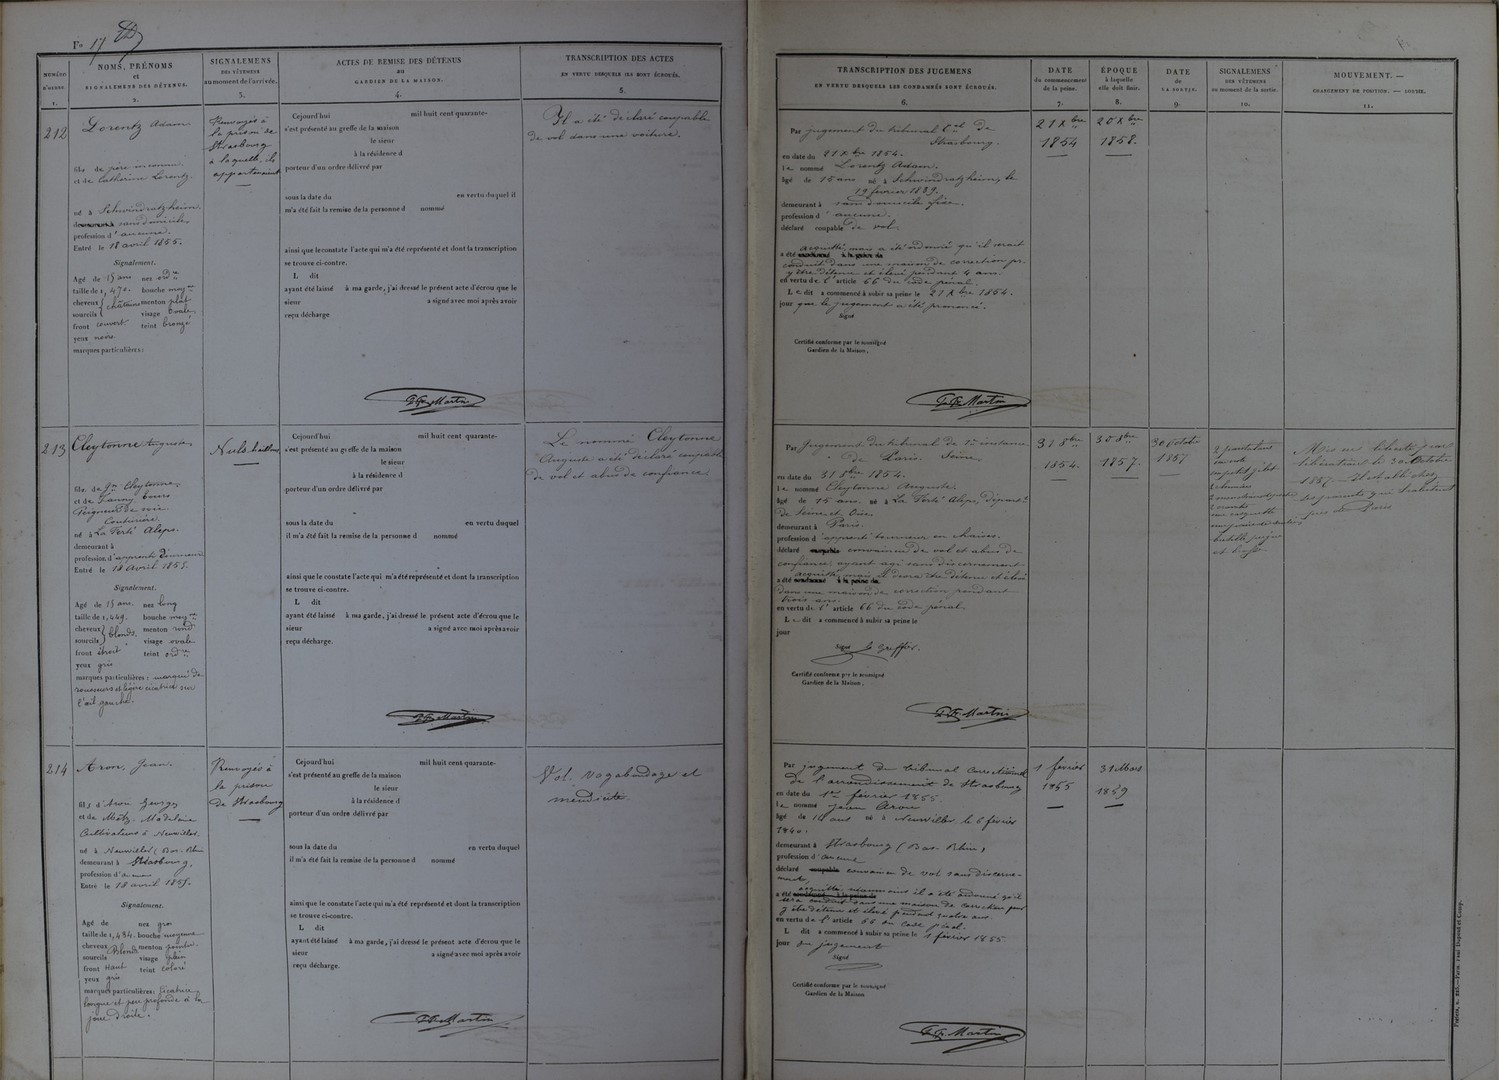 Fo 17
NUMÉRO
D'ORDRE
1.
NOMS, PRÉNOMS
et
SIGNALEMENS DES DÉTENUS.
2.
SIGNALEMENS
DES VÊTEMENS
au moment de l'arrivée.
3.
ACTES DE REMISE DES DÉTENUS
au
GARDIEN DE LA MAISON.
4.
TRANSCRIPTION DES ACTES
EN VERTU DESQUELS ILS SONT ÉCROUÉS.
5.
TRANSCRIPTION DES JUGEMENS
EN VERTU DESQUELS LES CONDAMNÉS SONT ÉCROUÉS.
6.
DATE
du commencement
de la peine.
7.
ÉPOQUE
à laquelle
elle doit finir.
8.
DATE
de
LA SORTIE.
9.
SIGNALEMENS
DES VÊTEMENS
au moment de la sortie.
10.
MOUVEMENT. —
CHANGEMENT DE POSITION. — SORTIE.
11.
212
Lorentz Adam
fils de père inconnu
et de Catherine Lorentz.
né à Schwindratzheim
sans domicile
profession d'aucune.
Entré le 18 avril 1855.
Signalement.
Agé de 15 ans nez ordre
taille de 1, 470. bouche moyne
cheveux châtains menton plat
sourcils visage Ovale
front couvert teint bronzé
yeux noirs.
marques particulières:
Renvoyés à
la prison de
Strasbourg
à laquelle ils
appartenaient
Cejourd'hui mil huit cent quarante-
s'est présenté au greffe de la maison
le sieur
à la résidence d
porteur d'un ordre délivré par
sous la date du en vertu duquel il
m'a été fait la remise de la personne d nommé
ainsi que le constate l'acte qui m'a été représenté et dont la transcription
se trouve ci-contre.
L dit
ayant été laissé à ma garde, j'ai dressé le présent acte d'écrou que le
sieur a signé avec moi après avoir
reçu décharge
Martin
Il a été déclaré coupable
de vol dans une voiture.
Par jugement du tribunal Cel de
Strasbourg.
en date du 21 Xbre 1854.
le nommé Lorentz Adam.
âgé de 15 ans né à Schwindratzheim, le
19 février 1839.
demeurant à sans domicile fixe.
profession d' aucune.
déclaré coupable de vol.
acquitté, mais a été ordonné qu'il serait
a été condamné à la peine de
conduit dans une maison de correction pr
y être détenu et élevé pendant 4 ans.
en vertu de l'article 66 du Code pénal.
Le dit a commencé à subir sa peine le 21 Xbre 1854.
jour que le jugement a été prononcé.
Signé
Certifié conforme par le soussigné
Gardien de la Maison.
Martin
21 Xbre
1854
20 Xbre
1858.
213
Cleytonne Auguste
fils de Cleytonne
et de
Peigneur de soie
Couturière
né à La Ferté Aleps.
demeurant à
profession d'apprenti
Entré le 18 Avril 1855.
Signalement.
Agé de 15 ans. nez long
taille de 1, 449. bouche moyne
cheveux blonds menton rond
sourcils visage ovale
front étroit teint ordre
yeux gris
marques particulières: marqué de
rousseurs et légère cicatrice sur
l'œil gauche.
Nuls haillons
Cejourd'hui mil huit cent quarante-
s'est présenté au greffe de la maison
le sieur
à la résidence d
porteur d'un ordre délivré par
sous la date du en vertu duquel
il m'a été fait la remise de la personne d nommé
ainsi que le constate l'acte qui m'a été représenté et dont la transcription
se trouve ci-contre.
L dit
ayant été laissé à ma garde, j'ai dressé le présent acte d'écrou que le
sieur a signé avec moi après avoir
reçu décharge.
Martin
Le nommé Cleytonne
Auguste a été déclaré coupable
de vol et abus de confiance
Par Jugement du tribunal de 1re instance
de Paris. Seine.
en date du 31 8bre 1854.
le nommé Cleytonne Auguste.
âgé de 15 ans. né à La Ferté Aleps, Départt
de Seine et Oise
demeurant à Paris.
profession d'apprenti tourneur en chaises.
déclaré coupable convaincu de vol et abus de
confiance, ayant agi sans discernement
acquitté, mais il devra être détenu et élevé
a été condamné à la peine de
dans une maison de correction pendant
trois ans.
en vertu de l'article 66 du Code pénal.
Le dit a commencé à subir sa peine le
jour
Signé le Greffier.
Certifié conforme par le soussigné
Gardien de la Maison.
Martin
31 8bre
1854.
30 8bre
1857.
30 Octobre
1857
2 pantalons
un gilet
Mis en liberté pour
libération le 30 Octobre
1857. Il est allé chez
ses parents qui habitent
près de Paris
214
Aron, Jean.
fils d'Aron Georges
et de Metz, Madelaine
Cultivateurs à Neuwiller.
né à Neuwiller (Bas-Rhin
demeurant à Strasbourg,
profession d'aucune
Entré le 18 avril 1855.
Signalement.
Agé de nez gros
taille de 1, 434. bouche moyenne
cheveux Blonds menton pointu
sourcils visage plein
front Haut teint coloré
yeux gris
marques particulières: Cicatrice
longue et peu profonde à la
joue droite.
Renvoyés à
la prison
de Strasbourg
Cejourd'hui mil huit cent quarante-
s'est présenté au greffe de la maison
le sieur
à la résidence d
porteur d'un ordre délivré par
sous la date du en vertu duquel
il m'a été fait la remise de la personne d nommé
ainsi que le constate l'acte qui m'a été représenté et dont la transcription
se trouve ci-contre.
L dit
ayant été laissé à ma garde, j'ai dressé le présent acte d'écrou que le
sieur a signé avec moi après avoir
reçu décharge.
Martin
Vol. Vagabodage et
mendicité.
Par jugement du tribunal Correctionnel
de l'arrondissement de Strasbourg
en date du 1er février 1855
le nommé Jean Aron
âgé de ans né à Neuwiller le 6 février
1840.
demeurant à Strasbourg (Bas-Rhin)
profession d'aucune
déclaré coupable convaincu de vol sans discerne-
ment,
acquitté, néanmoins il a été ordonné qu'il
a été condamné à la peine de
sera conduit dans une maison de correction pour
y être détenu et élevé pendant quatre ans.
en vertu de l'article 66 du Code pénal.
L dit a commencé à subir sa peine le 1 février 1855
jour du jugement
Signé
Certifié conforme par le soussigné
Gardien de la Maison
Martin
1 février
1855
31 Mars
1859